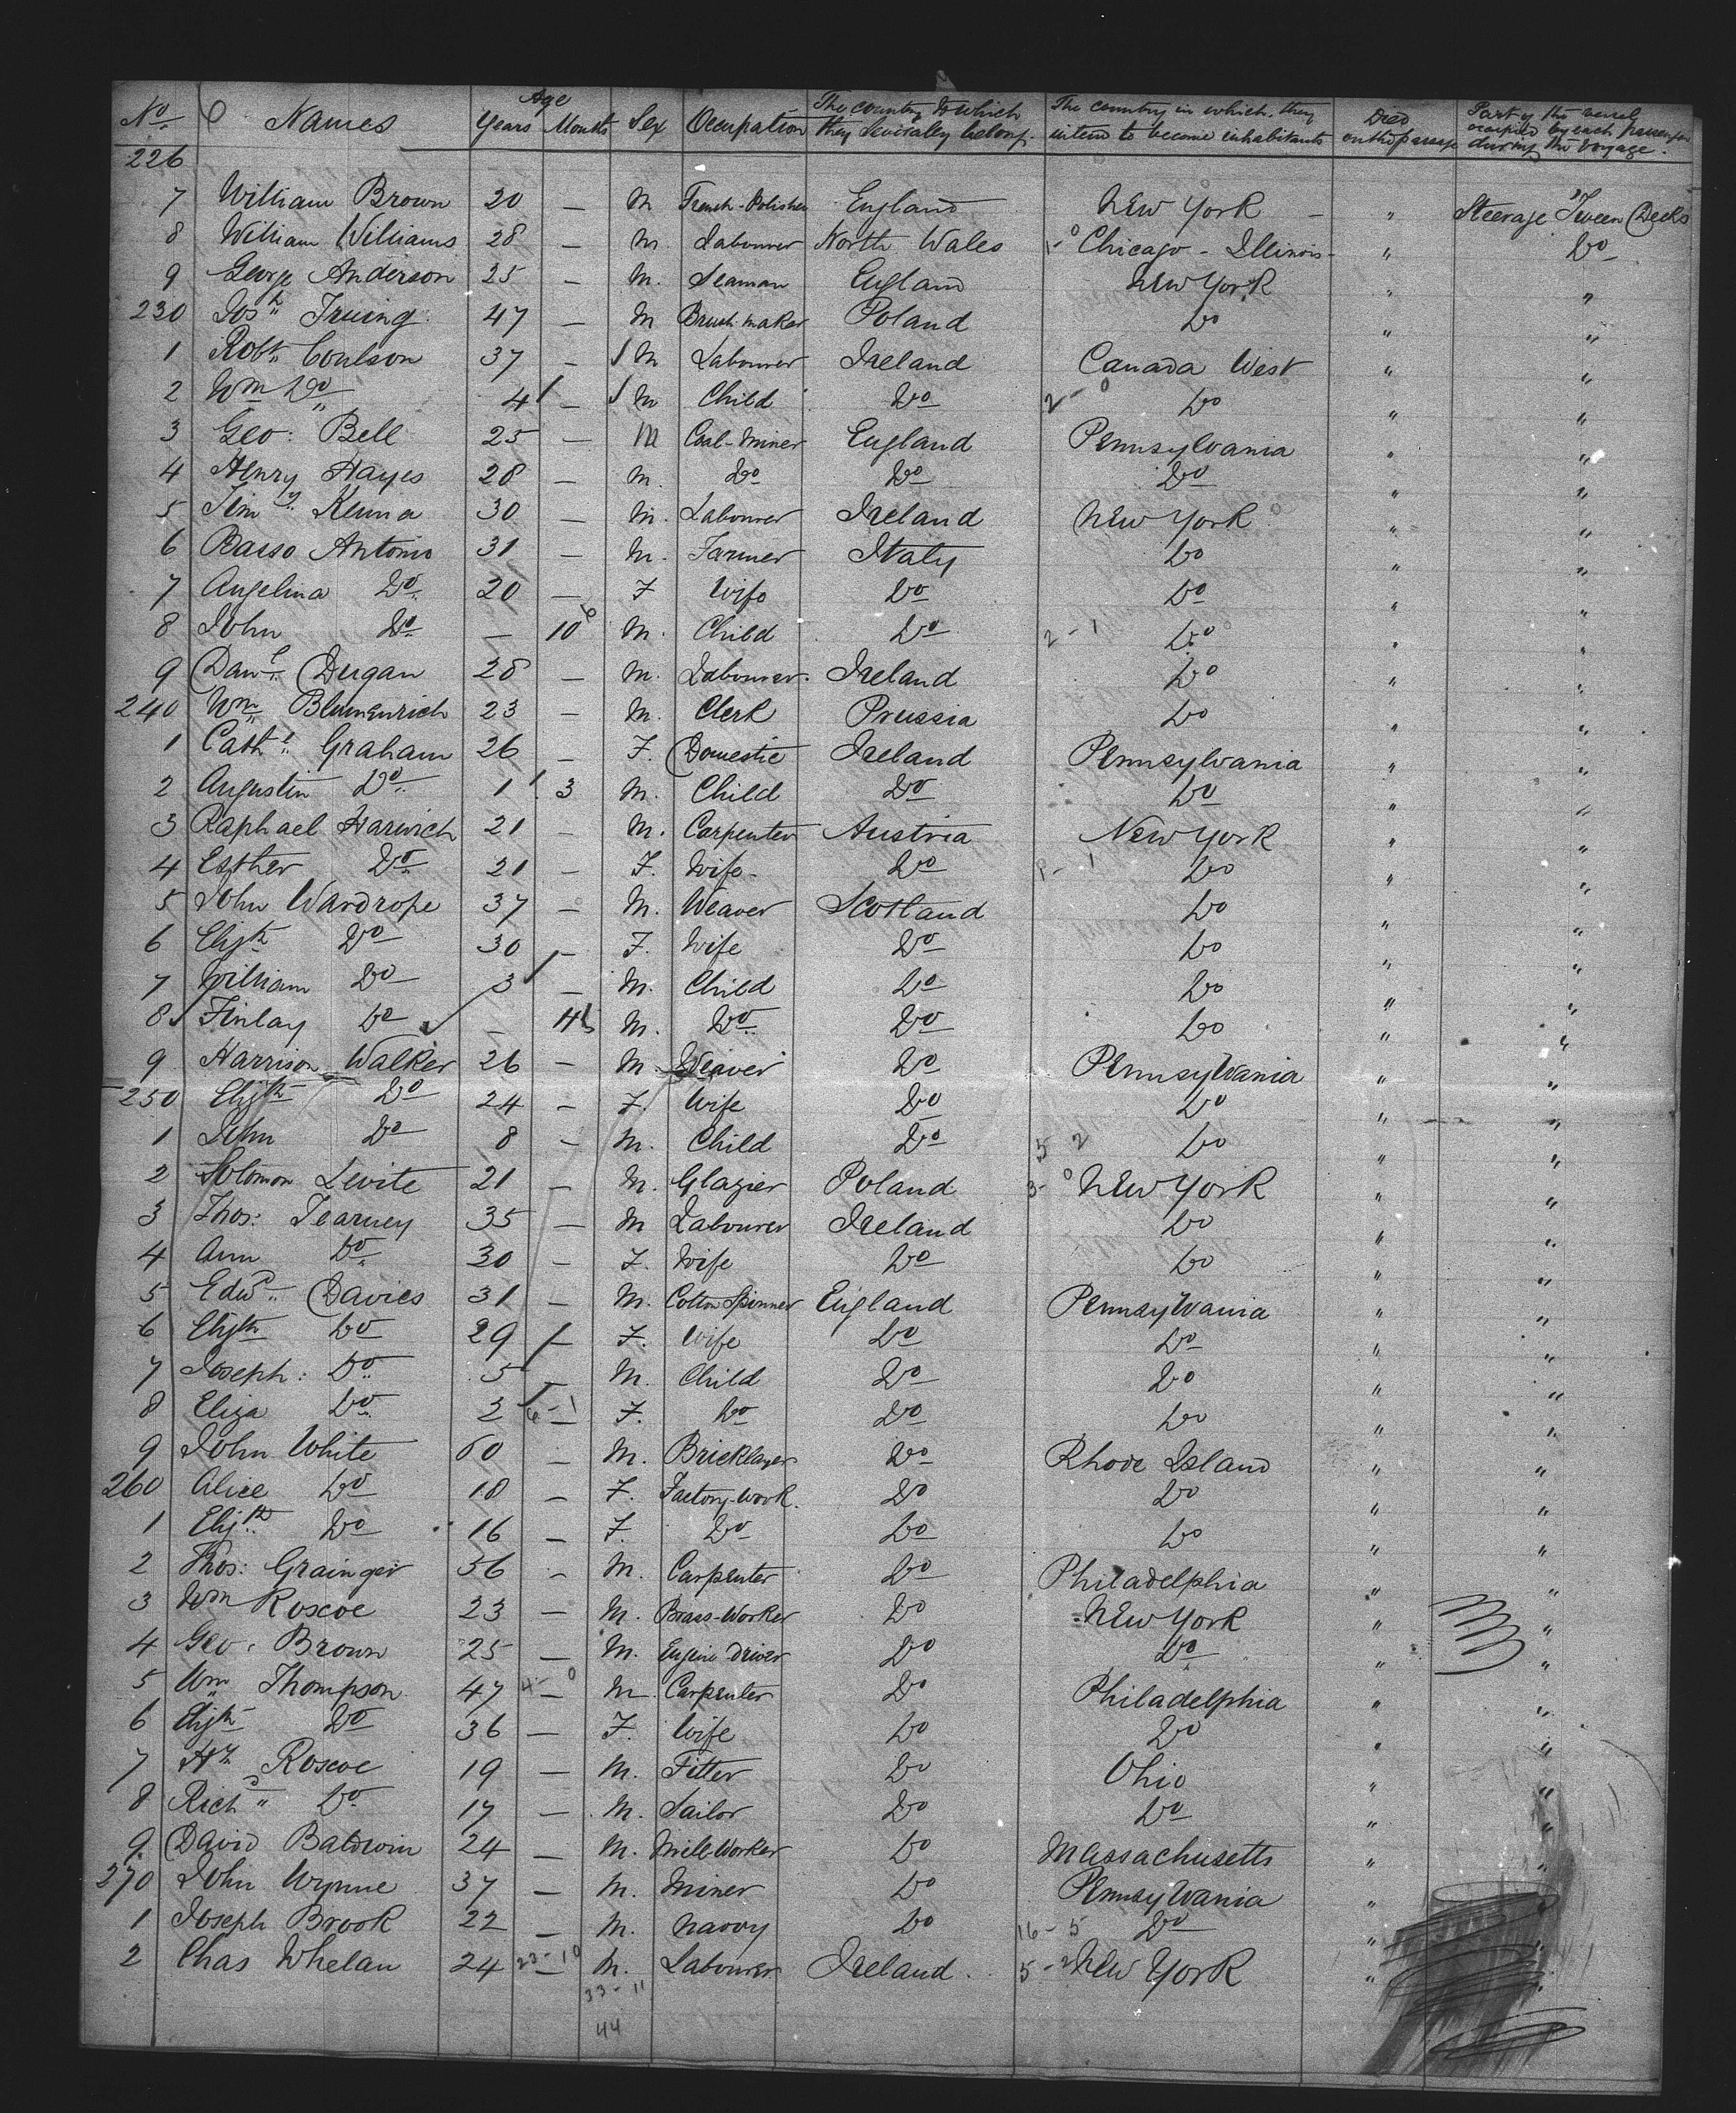 No Names Age Years Months Sex Occupation The country to which they severally belong The country in which they intend to become inhabitants Died on the passage Part of the vessel occupied by each passenger during the Voyage.
226
7 William Brown 20 — M French-Polisher England New York — " Steerage 'Tween Decks
8 William Williams 28 — M. Labourer North Wales Chicago - Illinois - " Do
9 George Anderson 25 — M. Seaman England New York " "
230 Josh Irving 47 — M Brush maker Poland Do " "
1 Robt Coulson 37 — M Labourer Ireland Canada West " "
2 Wm Do 4 — M Child Do 2 - 0 Do " "
3 Geo: Bell 25 — M Coal-Miner England Pennsylvania " "
4 Henry Hayes 28 — M. Do Do Do " "
5 Timy Kenna 30 — M. Labourer Ireland New York " "
6 Basso Antonio 31 — M. Farmer Italy Do " "
7 Angelina Do 20 — F Wife Do Do " "
8 John Do — 10 M. Child Do 2 - 1 Do " "
9 Danl Dugan 28 — M. Labourer Ireland Do " "
240 Wm Blumenrich 23 — M. Clerk Prussia Do " "
1 Cathe Graham 26 — F. Domestic Ireland Pennsylvania " "
2 Augustin Do 1 3 M. Child Do Do " "
3 Raphael Harwich 21 — M. Carpenter Austria New York " "
4 Esther Do 21 — F. Wife Do Do " "
5 John Wardrope 37 — M. Weaver Scotland Do " "
6 Elizth Do 30 — F. Wife Do Do " "
7 William Do 3 — M. Child Do Do " "
8 Finlay Do — M. Do Do Do " "
9 Harrison Walker 26 — M. Weaver Do Pennsylvania " "
250 Elizth Do 24 — F. Wife Do Do " "
1 John Do 8 — M. Child Do 5 2 Do " "
2 Solomon Levite 21 — M. Glazier Poland 3 - 0 New York " "
3 Thos: Tearney 35 — M Labourer Ireland Do " "
4 Ann Do 30 — F. Wife Do Do " "
5 Edwd Davies 31 — M. Cotton Spinner England Pennsylvania " "
6 Elizth Do 29 — F. Wife Do Do " "
7 Joseph: Do 5 — M. Child Do Do " "
8 Eliza Do 2 — F. Do Do Do " "
9 John White 60 — M. Bricklayer Do Rhode Island " "
260 Alice Do 18 — F. Factory-Work. Do Do " "
1 Elizth Do 16 — F. Do Do Do " "
2 Thos: Grainger 56 — M. Carpenter Do Philadelphia " "
3 Wm Roscoe 23 — M. Brass-Worker Do New York " "
4 Geo. Brown 25 — M. Engine Driver Do Do " "
5 Wm Thompson 47 4 - 0 — M. Carpenter Do Philadelphia " "
6 Elizth Do 36 — F. Wife Do Do " "
7 Hy Roscoe 19 — M. Fitter Do Ohio " "
8 Richd Do 17 — M. Sailor Do Do " "
9 David Baldwin 24 — M. Mill-Worker Do Massachusetts " "
270 John Wynne 37 — M. Miner Do Pennsylvania "
1 Joseph Brook 22 — M. Navvy Do 16 - 5 Do "
2 Chas Whelan 24 23 - 10 — M. Labourer Ireland 5 - 2 New York "
33 - 11
44